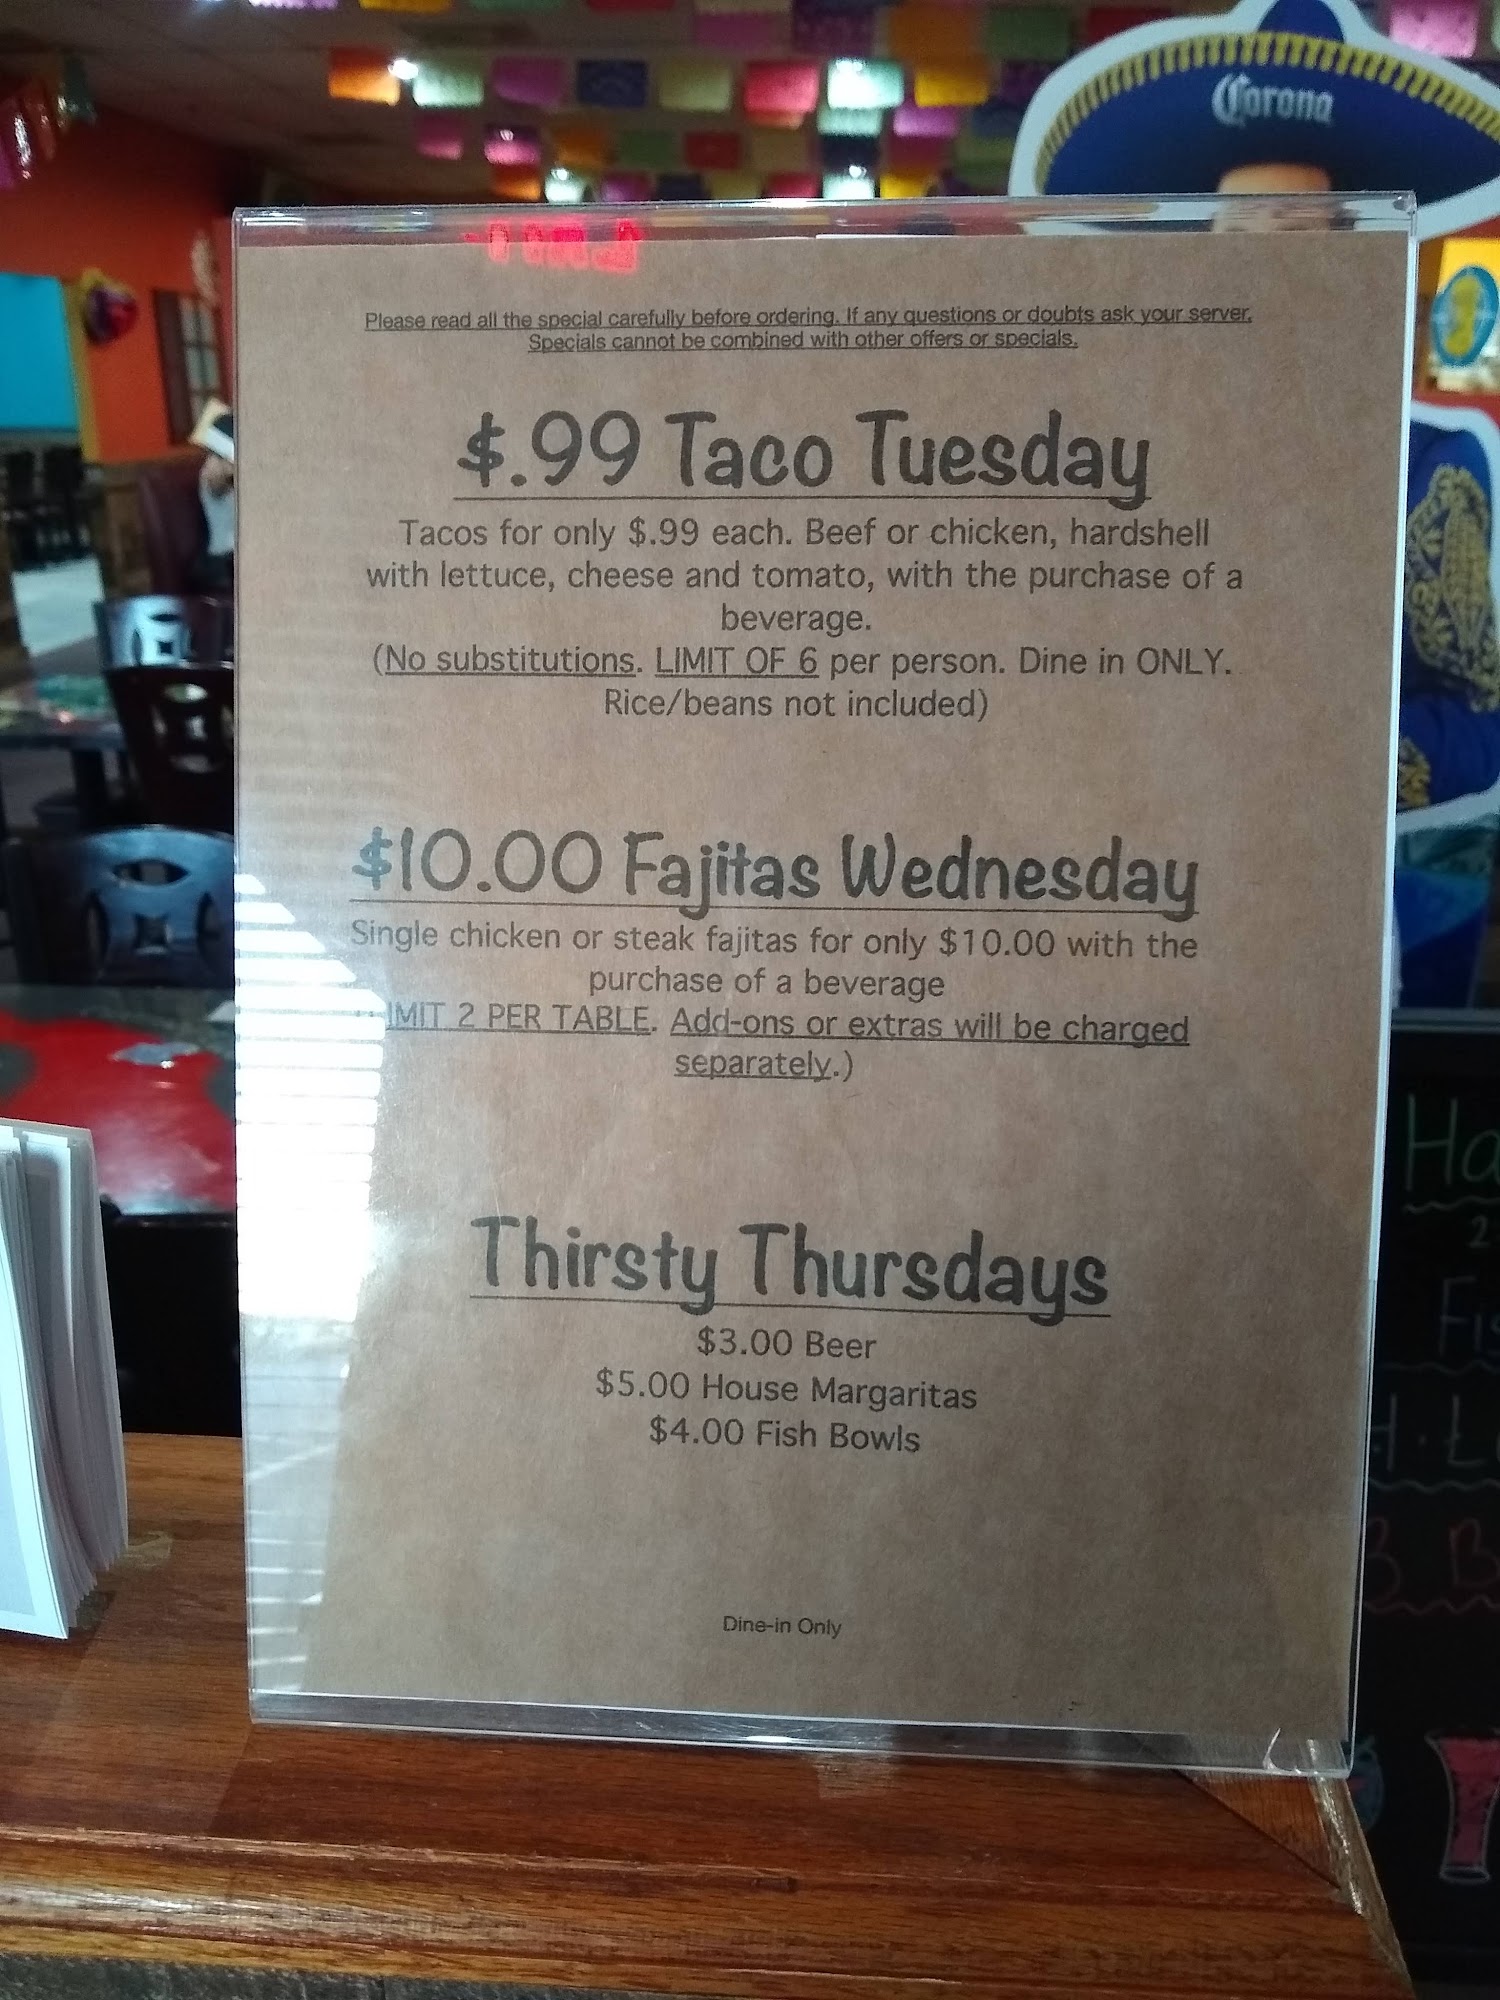 Corona
Please read all the special carefully before ordering. If any questions or doubts ask your server.
Specials cannot be combined with other offers or specials.
$.99 Taco Tuesday
Tacos for only $.99 each. Beef or chicken, hardshell
with lettuce, cheese and tomato, with the purchase of a
beverage.
(No substitutions. LIMIT OF 6 per person. Dine in ONLY.
Rice/beans not included)
$10.00 Fajitas Wednesday
Single chicken or steak fajitas for only $10.00 with the
purchase of a beverage
2 PER TABLE. Add-ons or extras will be charged
separately.)
Thirsty Thursdays
$3.00 Beer
$5.00 House Margaritas
$4.00 Fish Bowls
Dine-in Only